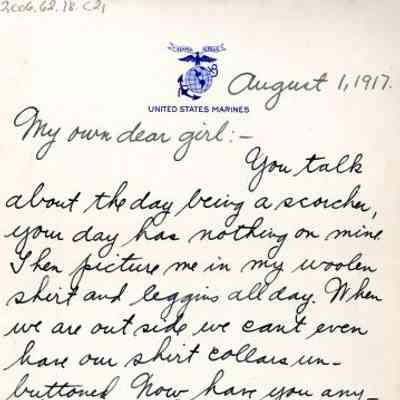 2006.62.18.C2,
SEMPER FIDELIS
UNITED STATES MARINES
August 1, 1917.
My own dear girl:-
You talk
about the day being a scorcher,
your day has nothing on mine.
Then picture me in my woolen
shirt and leggins all day. When
we are outside we cant even
have our shirt collars un-
buttoned. Now have you any-